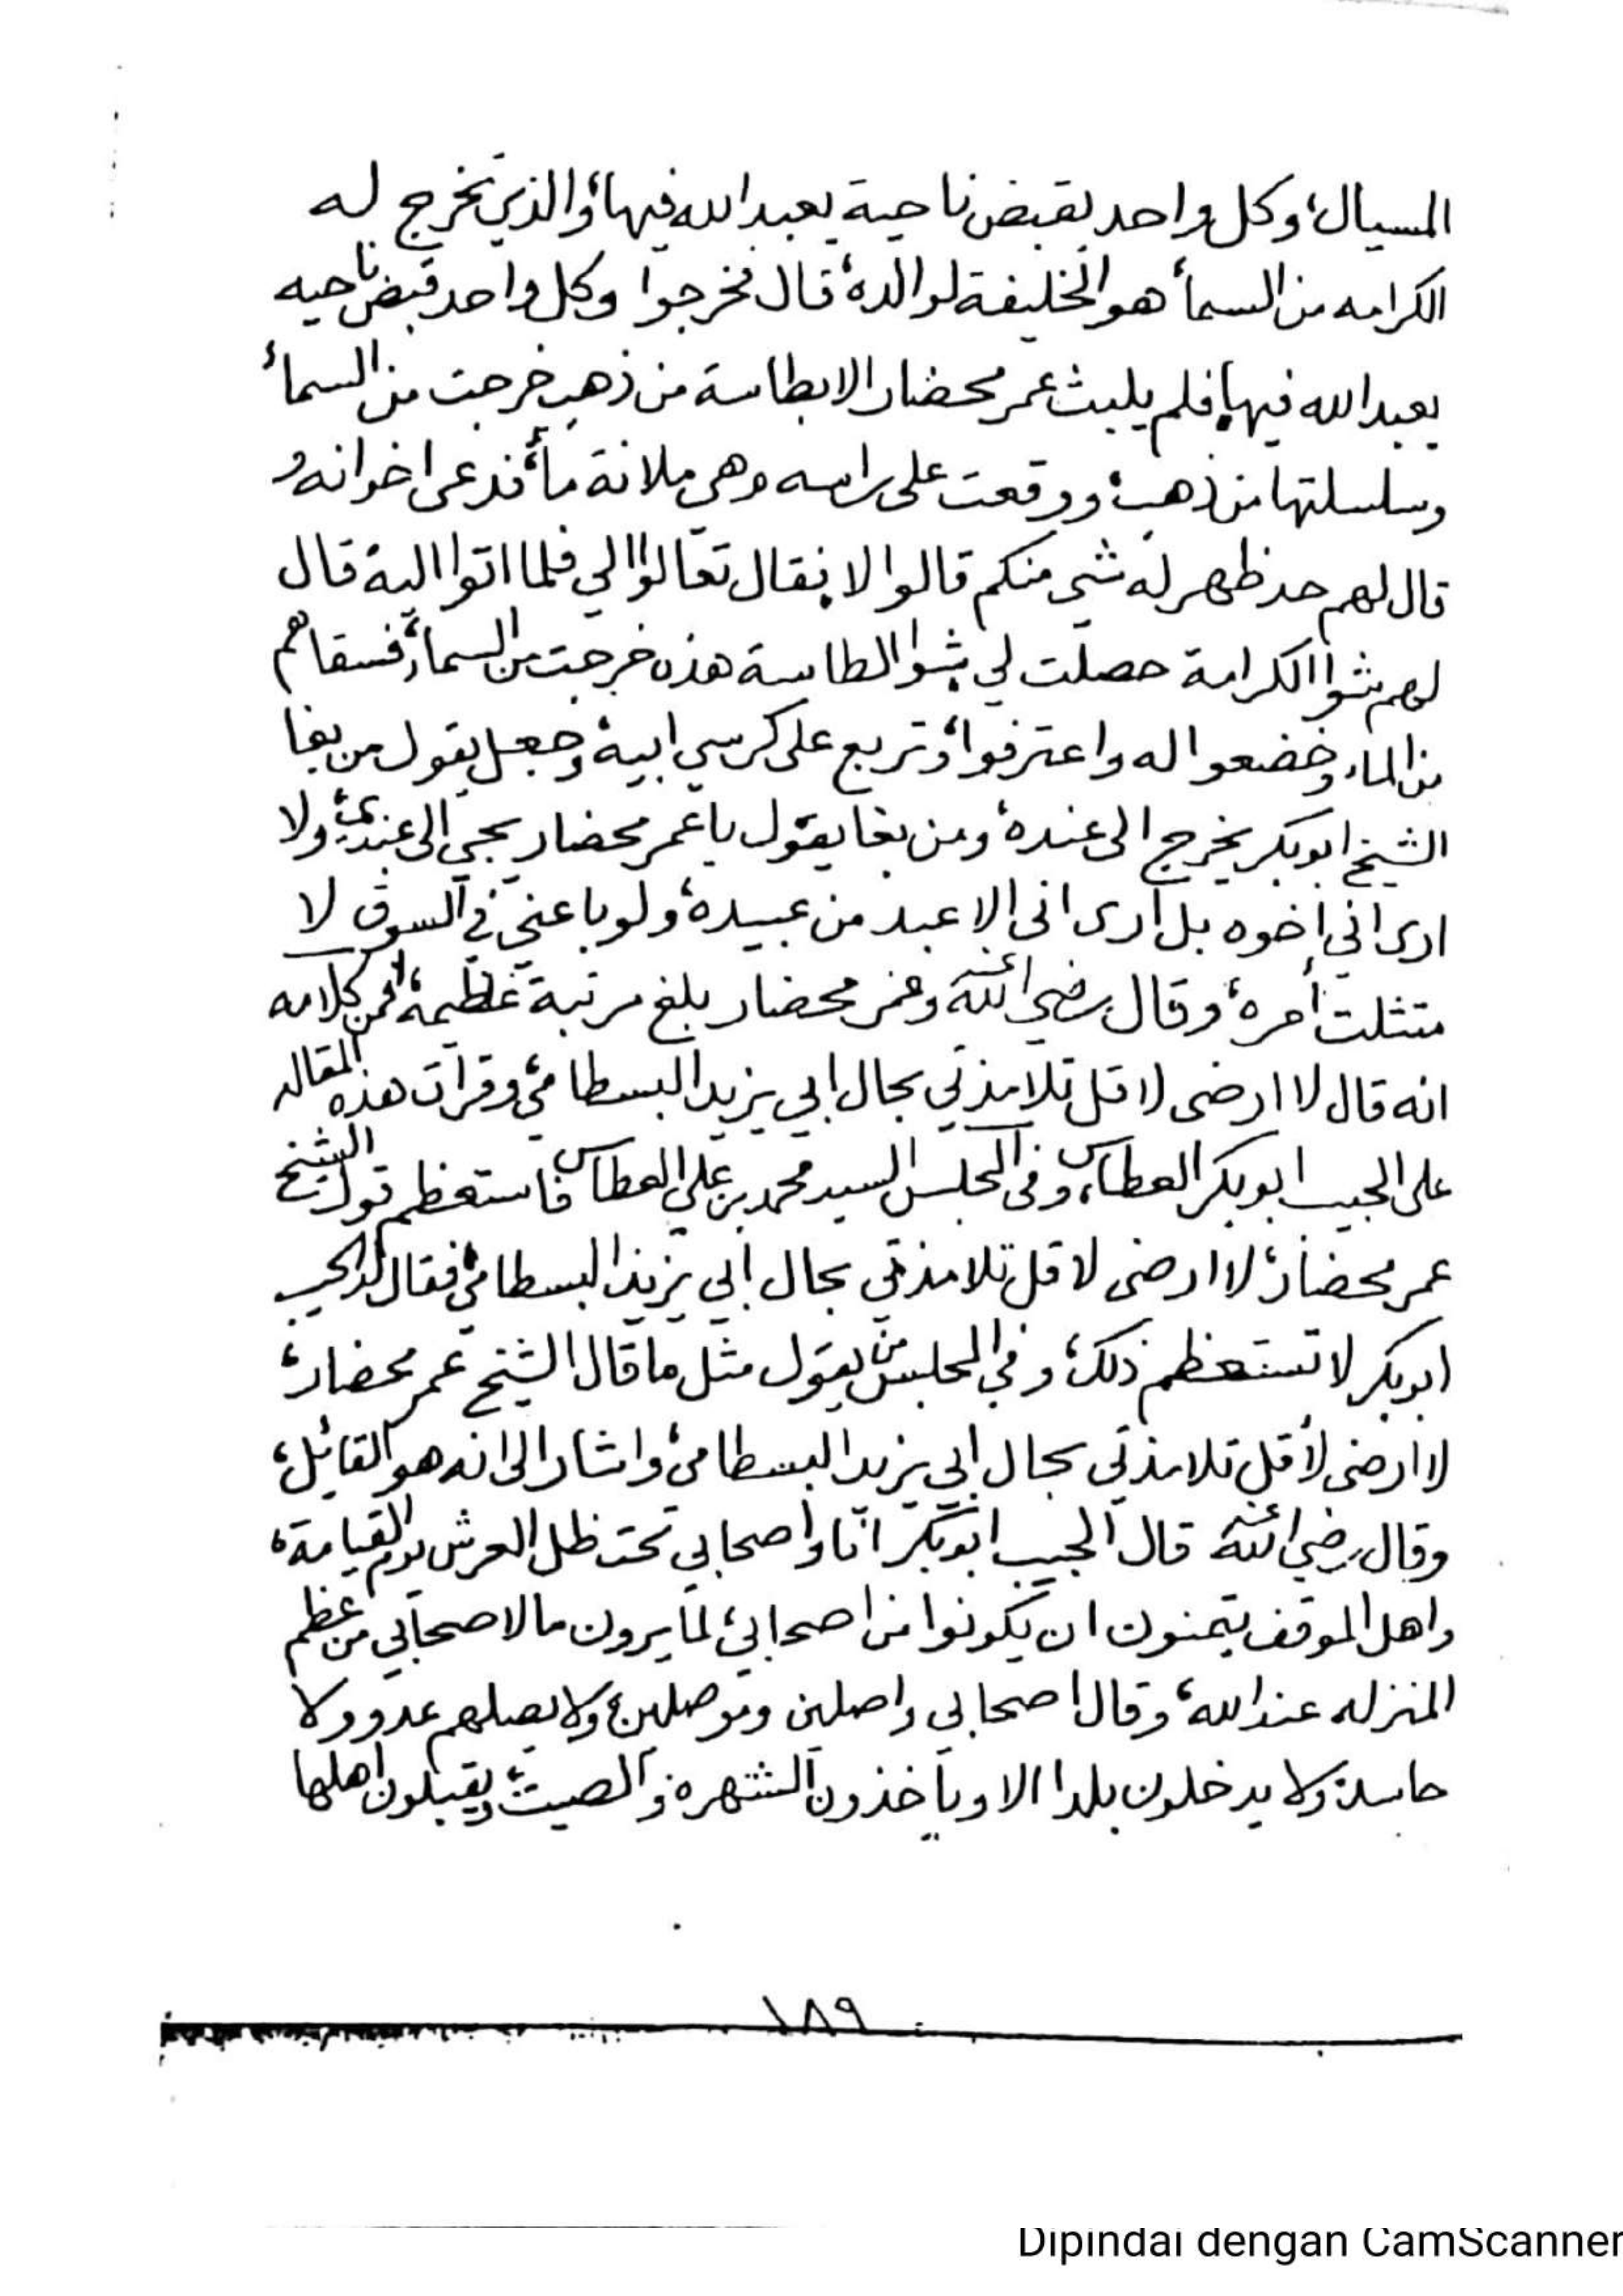 المسيال، وكل واحد يقبض ناحية يعبد الله فيها، والذي تخرج له
الكرامه من السماء هو الخليفة لوالده، قال فخرجوا وكل واحد قبض ناحيه
يعبد الله فيها، فلم يلبث عمر محضار الا بطاسة من ذهب خرجت من السماء
وسلسلتها من ذهب، ووقعت على راسه وهي ملانة ماء، فدعى اخوانه و
قال لهم حد ظهر له شي منكم قالوا لا، فقال تعالوا الي فلما اتوا اليه قال
لهم شوا الكرامة حصلت لي شوا الطاسة هذه خرجت من السماء، فسقاهم
من الماء، وخضعوا له واعترفوا، وتربع على كرسي ابيه، وجعل يقول من بغا
الشيخ ابوبكر يخرج الى عنده، ومن بغا يقول يا عمر محضار يجي الى عندي، ولا
ارى اني اخوه بل ارى اني الا عبد من عبيده، ولو باعني في السوق لا
متثلت أمره، وقال رضي الله عنه وعمر محضار بلغ مرتبة عظيمة، فمن كلامه
انه قال لا ارضى لاقل تلامذتي بحال ابي يزيد البسطامي، وقرات هذه المقاله
على الحبيب ابوبكر العطاس، وفي المجلس السيد محمد بن علي العطاس فاستعظم قول الشيخ
عمر محضار، لا ارضى لاقل تلامذتي بحال ابي يزيد البسطامي، فقال له الحبيب
ابوبكر لا تستعظم ذلك، وفي المجلس من يقول مثل ما قال الشيخ عمر محضار،
لا ارضى لأقل تلامذتي بحال ابي يزيد البسطامي، واشار الى انه هو القائل،
وقال رضي الله عنه قال الحبيب ابوبكر انا واصحابي تحت ظل العرش يوم القيامة،
واهل الموقف يتمنون ان يكونوا من اصحابي، لما يرون ما لاصحابي من عظم
المنزله عند الله، وقال اصحابي واصلين وموصلين، ولا يصلهم عدو ولا
حاسد، ولا يدخلون بلدا الا ويأخذون الشهرة والصيت، ويقبلون اهلها
١٨٩
Dipindai dengan CamScanner